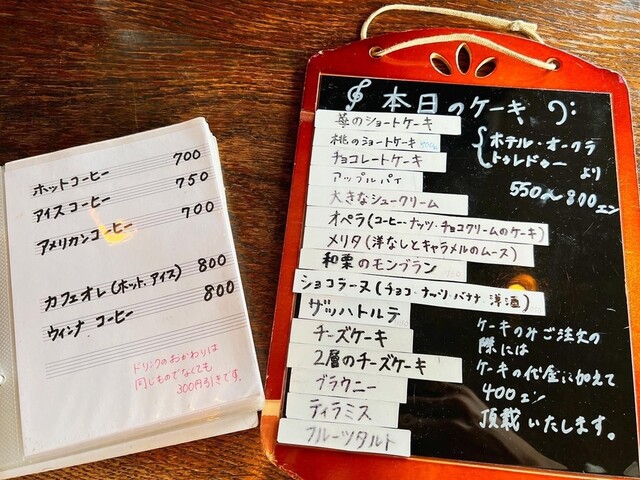 ホットコーヒー 700
アイスコーヒー 750
アメリカンコーヒー 700
カフェオレ(ホット、アイス) 800
ウィンナ コーヒー 800
ドリンクのおかわりは
同じものでなくても
300円引きです。
本日のケーキ
苺のショートケーキ
桃のショートケーキ
チョコレートケーキ
アップルパイ
大きなシュークリーム
オペラ(コーヒー・ナッツ・チョコクリームのケーキ)
メリタ(洋なしとキャラメルのムース)
和栗のモンブラン
ショコラーヌ(チョコ・ナッツ・バナナ 洋酒)
ザッハトルテ
チーズケーキ
2層のチーズケーキ
ブラウニー
ティラミス
フルーツタルト
ホテル・オークラ
トゥレドゥー
より
550〜800エン
ケーキのみご注文の
際には
ケーキの代金に加えて
400エン
頂戴いたします。